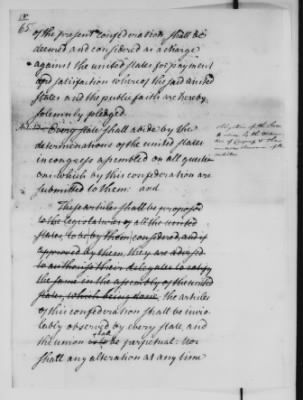 65
of the present confederation, shall be
deemed and considered as a charge
against the united states, for payment
and satisfaction whereof the said united
states and the public faith are hereby
solemnly pledged.
Every state shall abide by the
determinations of the united states
in congress assembled on all questi
ons which by this confederation are
submitted to them: and
These articles shall be proposed
to the legislatures of all the united
states, to be by them considered, and if
approved by them, they are advised
to authorise their delegates to ratify
the same in the assembly of the united
states, which being done, the articles
of this confederation shall be invio
lably observed by every state, and
the union shall be perpetual: Nor
shall any alteration at any time